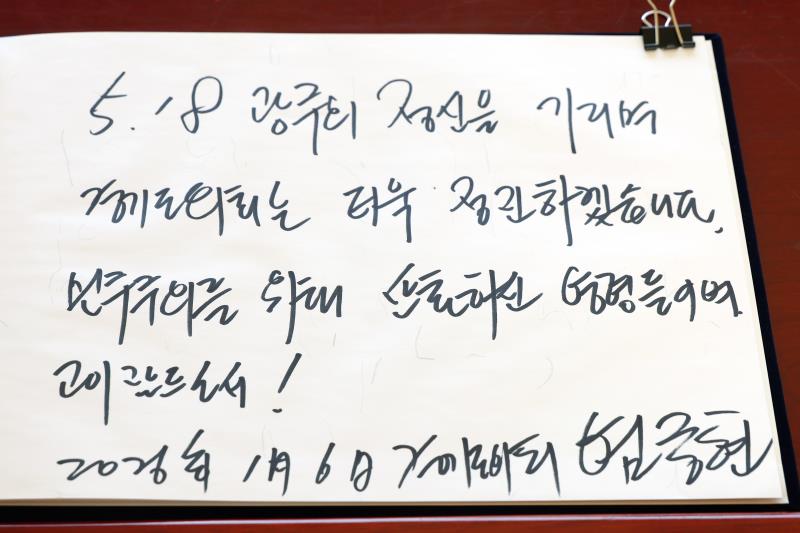 5.18 광주의 정신을 기리며
경기도의회는 더욱 정진하겠습니다.
민주주의를 위해 산화하신 영령들이여
고이 잠드소서!
2026년 1月 6日 경기도의회